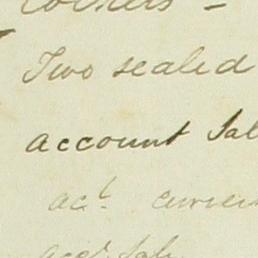 Two sealed
account Sal
act curren
acct Sal